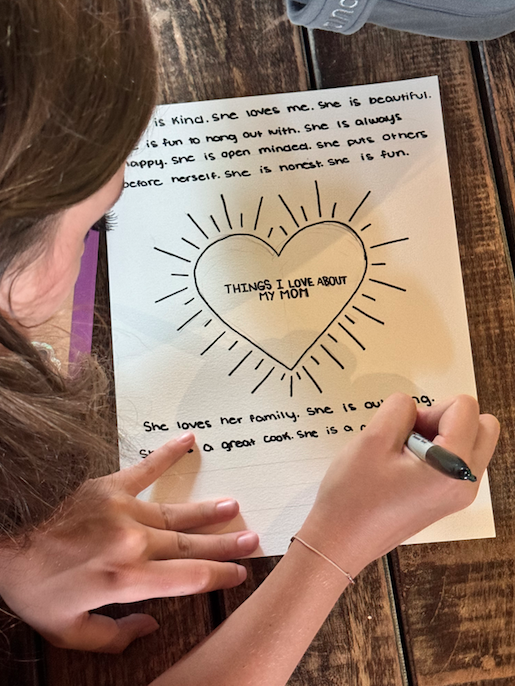 is kind. She loves me. She is beautiful.
is fun to hang out with. She is always
happy. She is open minded. She puts others
before herself. She is honest. She is fun.
THINGS I LOVE ABOUT
MY MOM
She loves her family. She is
a great cook. She is a